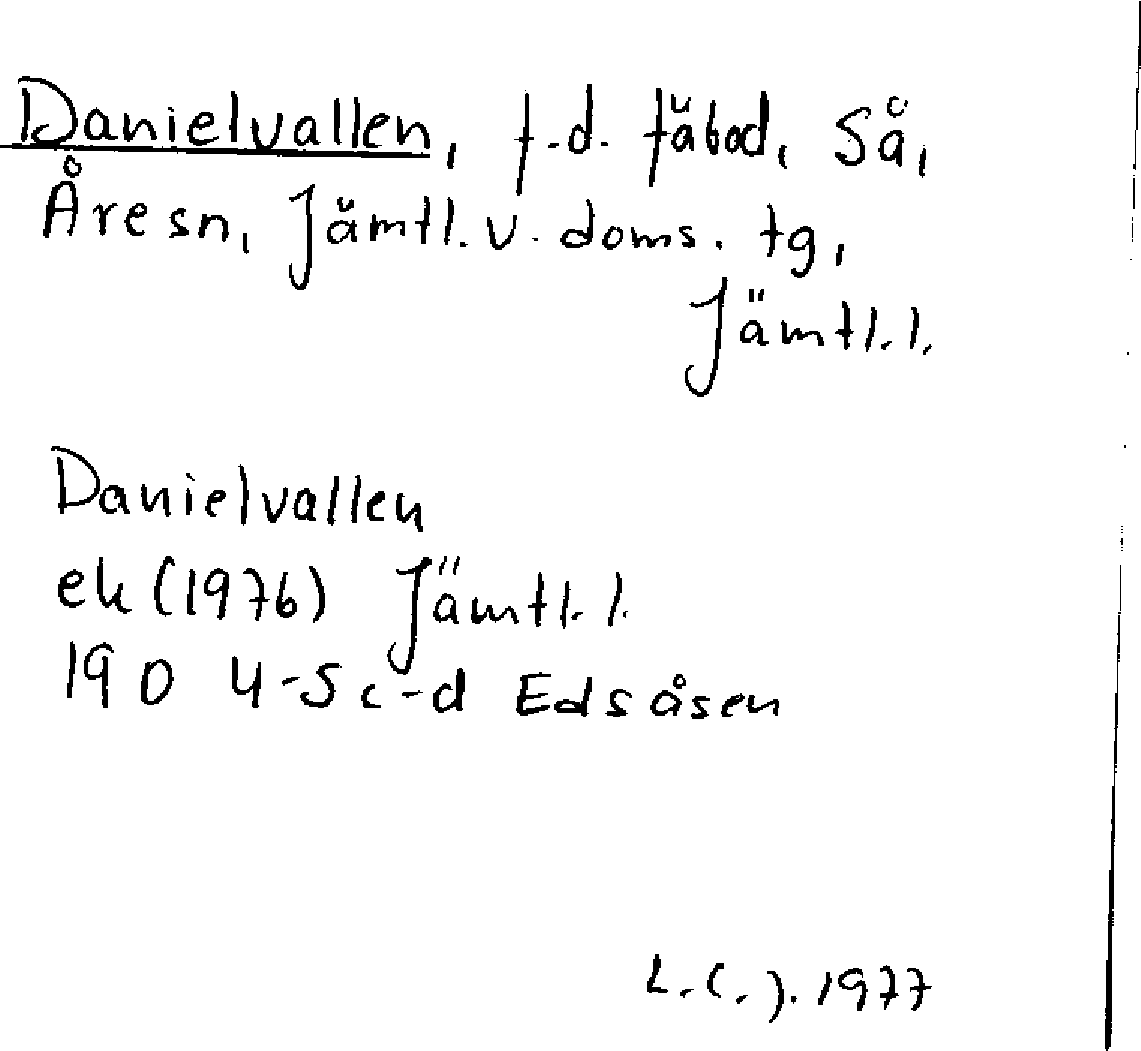 Danielvallen, f.d. fäbod, Så,
Åre sn, Jämtl. v. doms. tg,
Jämtl. l.
Danielvallen
ek (1976) Jämtl. l.
19D 4-5 c-d Edsåsen
L.C.J. 1977